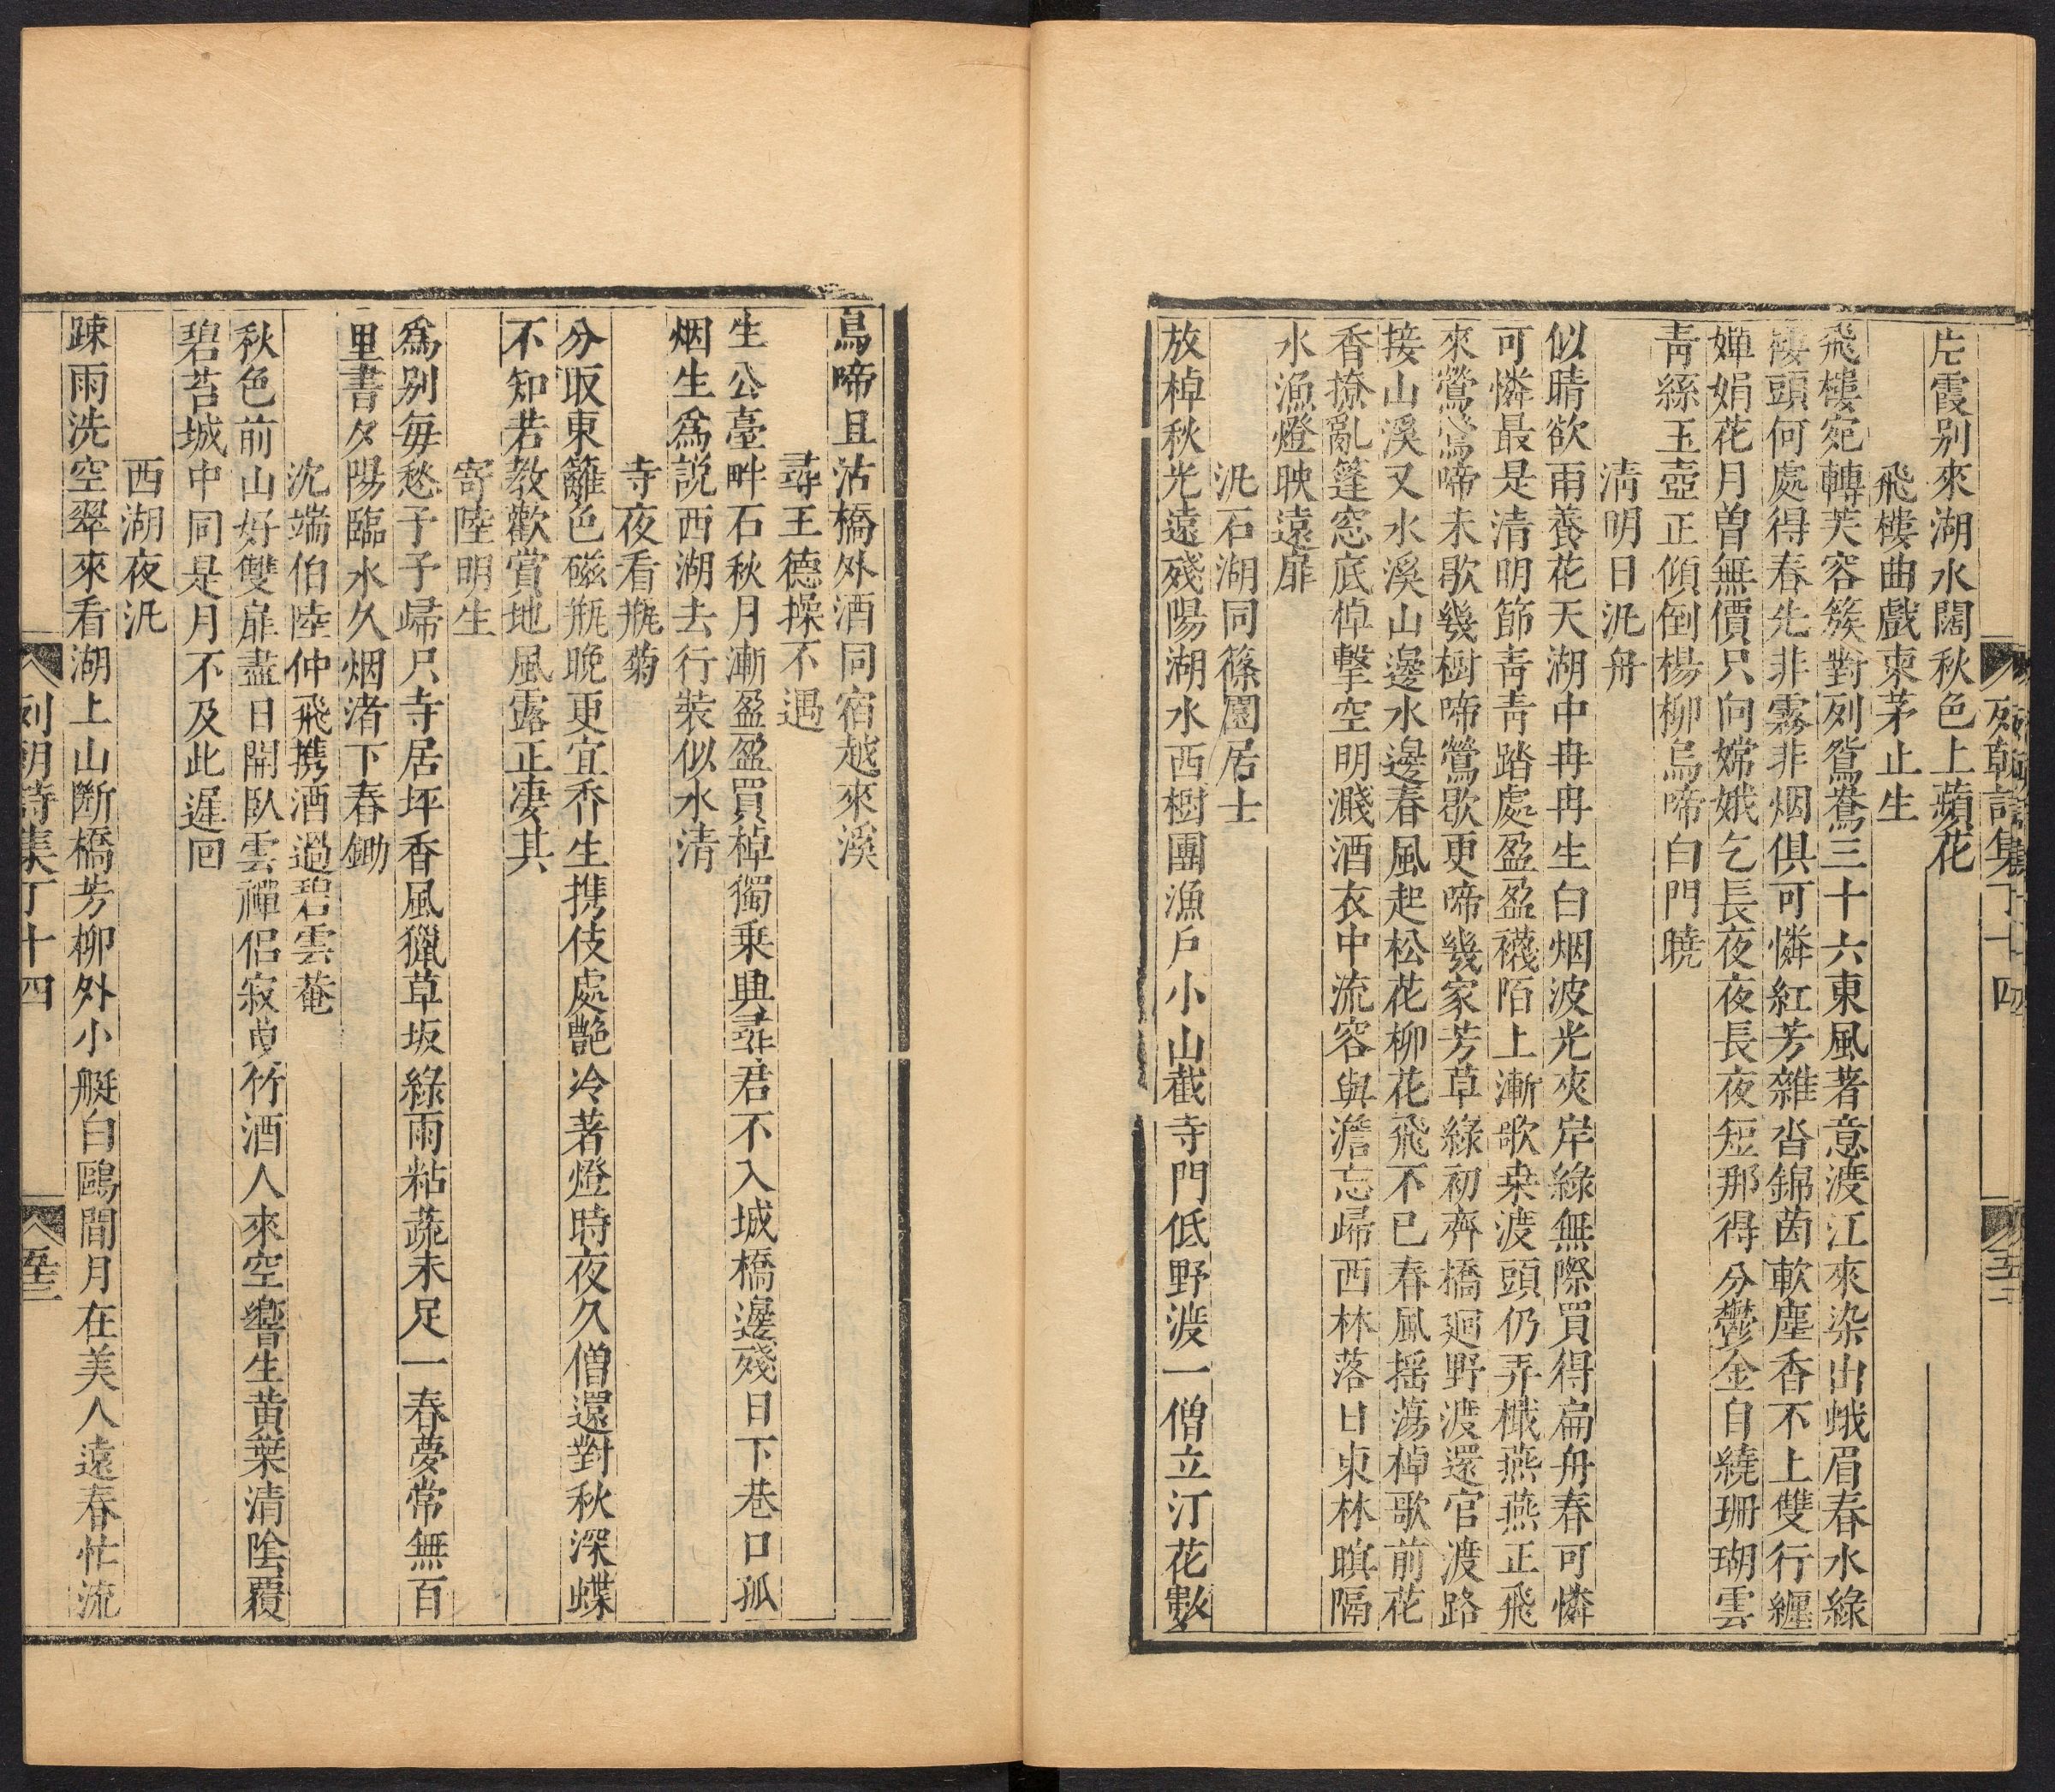 列朝詩集丁十四
片霞别來湖水闊秋色上蘋花
飛樓曲戲柬茅止生
飛樓宛轉芙容簇對列鴛鴦三十六東風著意渡江來染出蛾眉春水綠
樓頭何處得春先非霧非烟俱可憐紅芳雜沓錦茵軟塵香不上雙行纏
嬋娟花月曽無價只向嫦娥乞長夜夜長夜短那得分鬱金自繞珊瑚雲
靑絲玉壺正傾倒楊柳烏啼白門曉
淸明日汎舟
似晴欲雨養花天湖中冉冉生白烟波光夾岸綠無際買得扁舟春可憐
可憐最是清明節靑靑踏處盈盈襪陌上漸歌桒渡頭仍弄檝燕燕正飛
來鶯鶯啼未歇幾樹啼鶯歇更啼幾家芳草綠初齊橋廻野渡還官渡路
接山溪又水溪山邊水邊春風起松花柳花飛不已春風摇蕩棹歌前花
香撩亂篷窓底棹擊空明濺酒衣中流容與澹忘歸西林落日東林暝隔
水漁燈映遠扉
汎石湖同篠園居士
放棹秋光遠殘陽湖水西樹團漁戶小山截寺門低野渡一僧立汀花數
鳥啼且沽橋外酒同宿越來溪
尋王德操不遇
生公臺畔石秋月漸盈盈買棹獨乗興尋君不入城橋邊殘日下巷口孤
烟生爲説西湖去行裝似水清
寺夜看瓶菊
分取東籬色磁瓶晚更宜香生携伎處艶冷著燈時夜久僧還對秋深蝶
不知若教歡賞地風露正凄其
寄陸明生
爲别每愁予予歸只寺居坪香風獵草坂綠雨粘蔬未足一春夢常無百
里書夕陽臨水久烟渚下春鋤
沈端伯陸仲飛携酒過碧雲菴
秋色前山好雙扉盡日開臥雲禪侣寂曳竹酒人來空響生黄葉清陰覆
碧苔城中同是月不及此遲囘
西湖夜汎
疎雨洗空翠來看湖上山斷橋芳柳外小艇白鷗間月在美人遠春忙流
列朝詩集丁十四